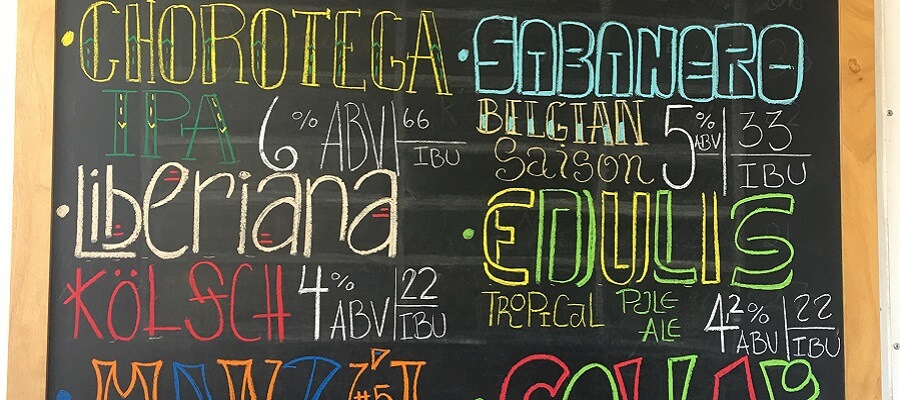 • CHOROTEGA
IPA 6% ABV 66 IBU
• Liberiana
KÖLSCH 4% ABV 22 IBU
• SABANERO
BELGIAN Saison 5% ABV 33 IBU
• EDULIS
TROPICAL PALE ALE 4.2% ABV 22 IBU